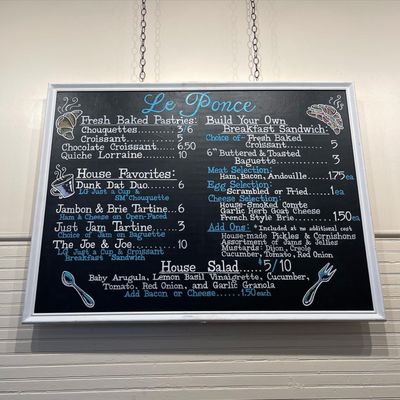 Le Ponce
Fresh Baked Pastries:
Chouquettes......... 3/6
Croissant............ 5
Chocolate Croissant...... 6.50
Quiche Lorraine........ 10
House Favorites:
Dunk Dat Duo........ 6
LG Just a Cup &
SM Chouquette
Jambon & Brie Tartine...6
Ham & Cheese on Open-Faced
Just Jam Tartine....... 3
Choice of Jam on Baguette
The Joe & Joe......... 10
LG Just a Cup & Croissant
Breakfast Sandwich
Build Your Own
Breakfast Sandwich:
Choice of- Fresh Baked
Croissant.......... 5
6" Buttered & Toasted
Baguette............ 3
Meat Selection:
Ham, Bacon, Andouille.....1.75 ea
Egg Selection:
Scrambled or Fried.... 1 ea
Cheese Selection:
House-Smoked Comte
Garlic Herb Goat Cheese
French Style Brie........ 1.50 ea
Add Ons: *Included at no additional cost
House-made Pickles & Cornishons
Assortment of Jams & Jellies
Mustards: Dijon, Creole
Cucumber, Tomato, Red Onion
House Salad......$5/10
Baby Arugula, Lemon Basil Vinaigrette, Cucumber,
Tomato, Red Onion, and Garlic Granola
Add Bacon or Cheese......1.50 each